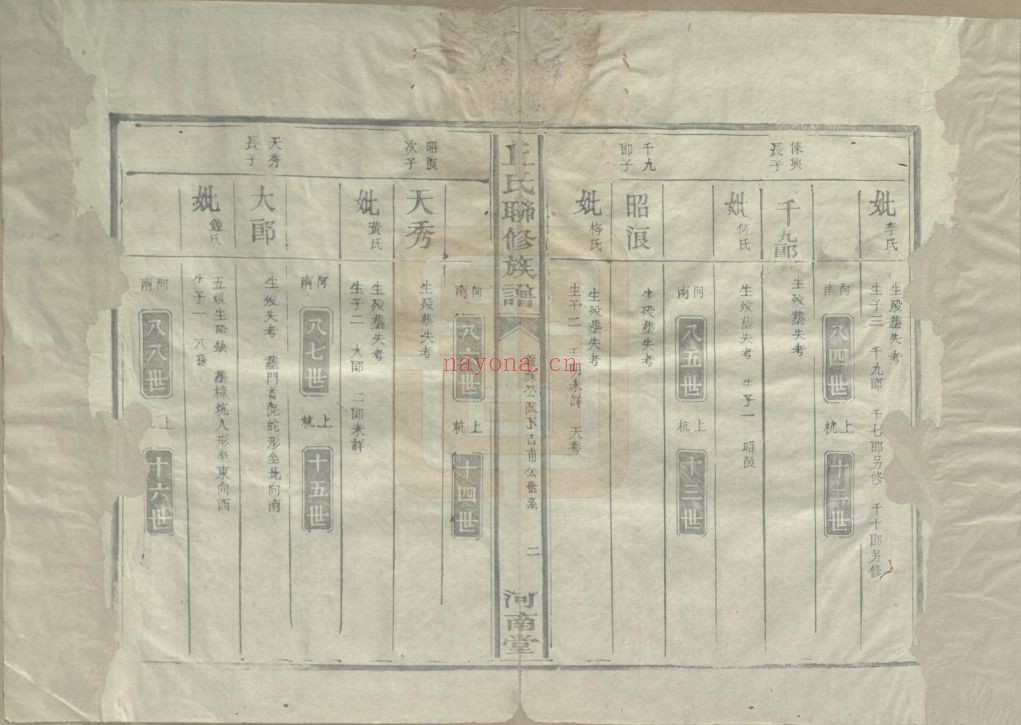 妣李氏
生殁塟失考
生子三 千九郎 千七郎另修 千十郎另修
河南 八四世 上杭 十二世
徠興長子
千九郎
生殁塟失考
妣何氏
生殁塟失考 生子一 昭浪
河南 八五世 上杭 十三世
千九郎子
昭浪
生殁塟失考
妣梅氏
生殁塟失考
生子二 天明未詳 天秀
丘氏聯修族譜
二
河南堂
河南 八六世 上杭 十四世
昭浪次子
天秀
生殁塟失考
妣黃氏
生殁塟失考
生子二 大郎 二郎未詳
河南 八七世 上杭 十五世
天秀長子
大郎
生殁失考 塟門首陂蛇形坐北向南
妣鍾氏
五娘生殁缺 塟樟坑人形坐東向西
生子一 八郎
河南 八八世 上杭 十六世
nayona.cn